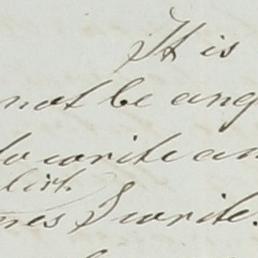 It is
not be ang
to write an
nes I write.